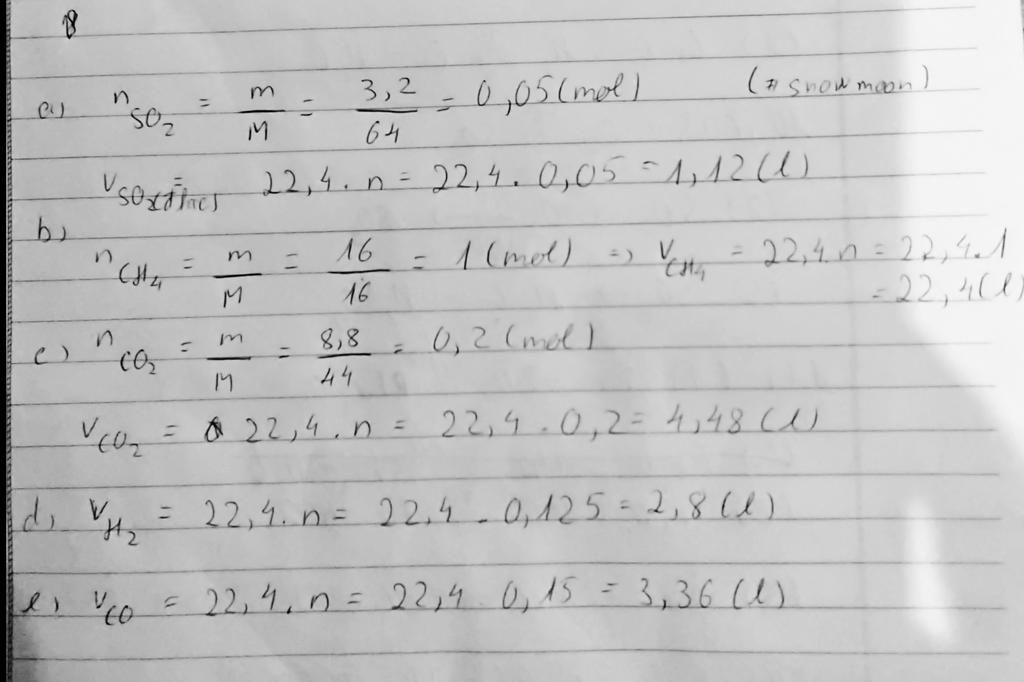 8
a) n SO2 = m/M = 3,2/64 = 0,05 (mol) (# snowmoon)
V SO2(đktc) = 22,4 . n = 22,4 . 0,05 = 1,12 (l)
b)
n CH4 = m/M = 16/16 = 1 (mol) => V CH4 = 22,4.n = 22,4.1
= 22,4 (l)
c) n CO2 = m/M = 8,8/44 = 0,2 (mol)
V CO2 = 22,4 . n = 22,4 . 0,2 = 4,48 (l)
d) V H2 = 22,4. n = 22,4 . 0,125 = 2,8 (l)
e) V CO = 22,4. n = 22,4 . 0,15 = 3,36 (l)